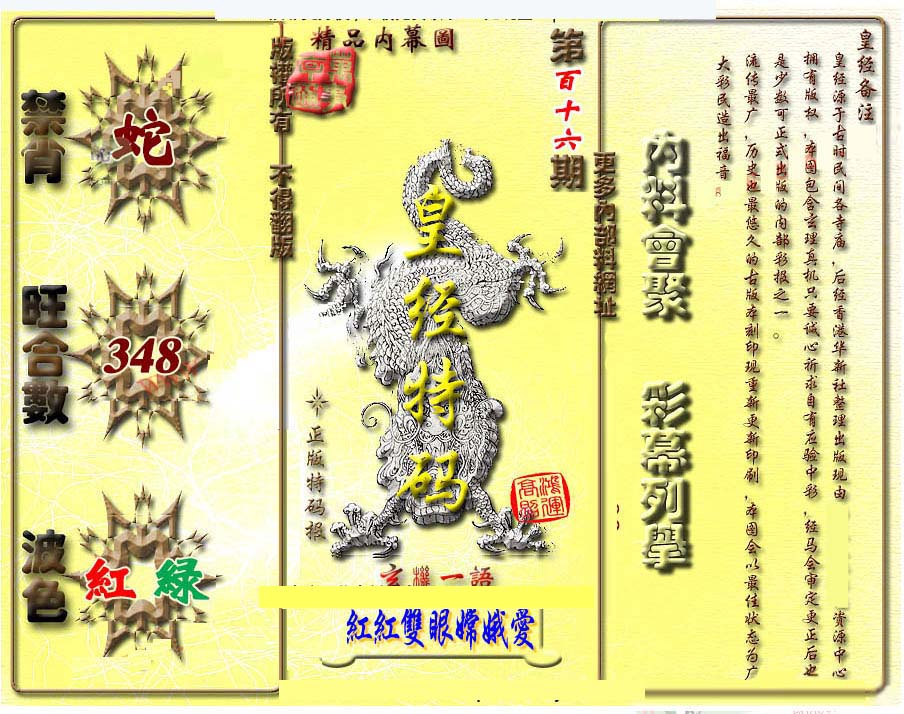 精品内幕圖
版權所有 不得翻版
第百十六期
更多內部料網址
禁肖
蛇
旺合數
348
波色
紅 綠
皇经特码
正版特码报
鴻運
高照
玄機一語
紅紅雙眼嫦娥愛
內料會聚
彩幕列舉
皇经备注
皇经源于古时民间各寺庙,后经香港华新社整理出版现由 资源中心
拥有版权,本图包含玄理真机只要诚心祈求自有应验中彩,经马会审定更正后也
是少数可正式出版的内部彩报之一。
流传最广,历史也最悠久的古版本刻印现重新更新印刷,本图会以最佳状态为广
大彩民造出福音